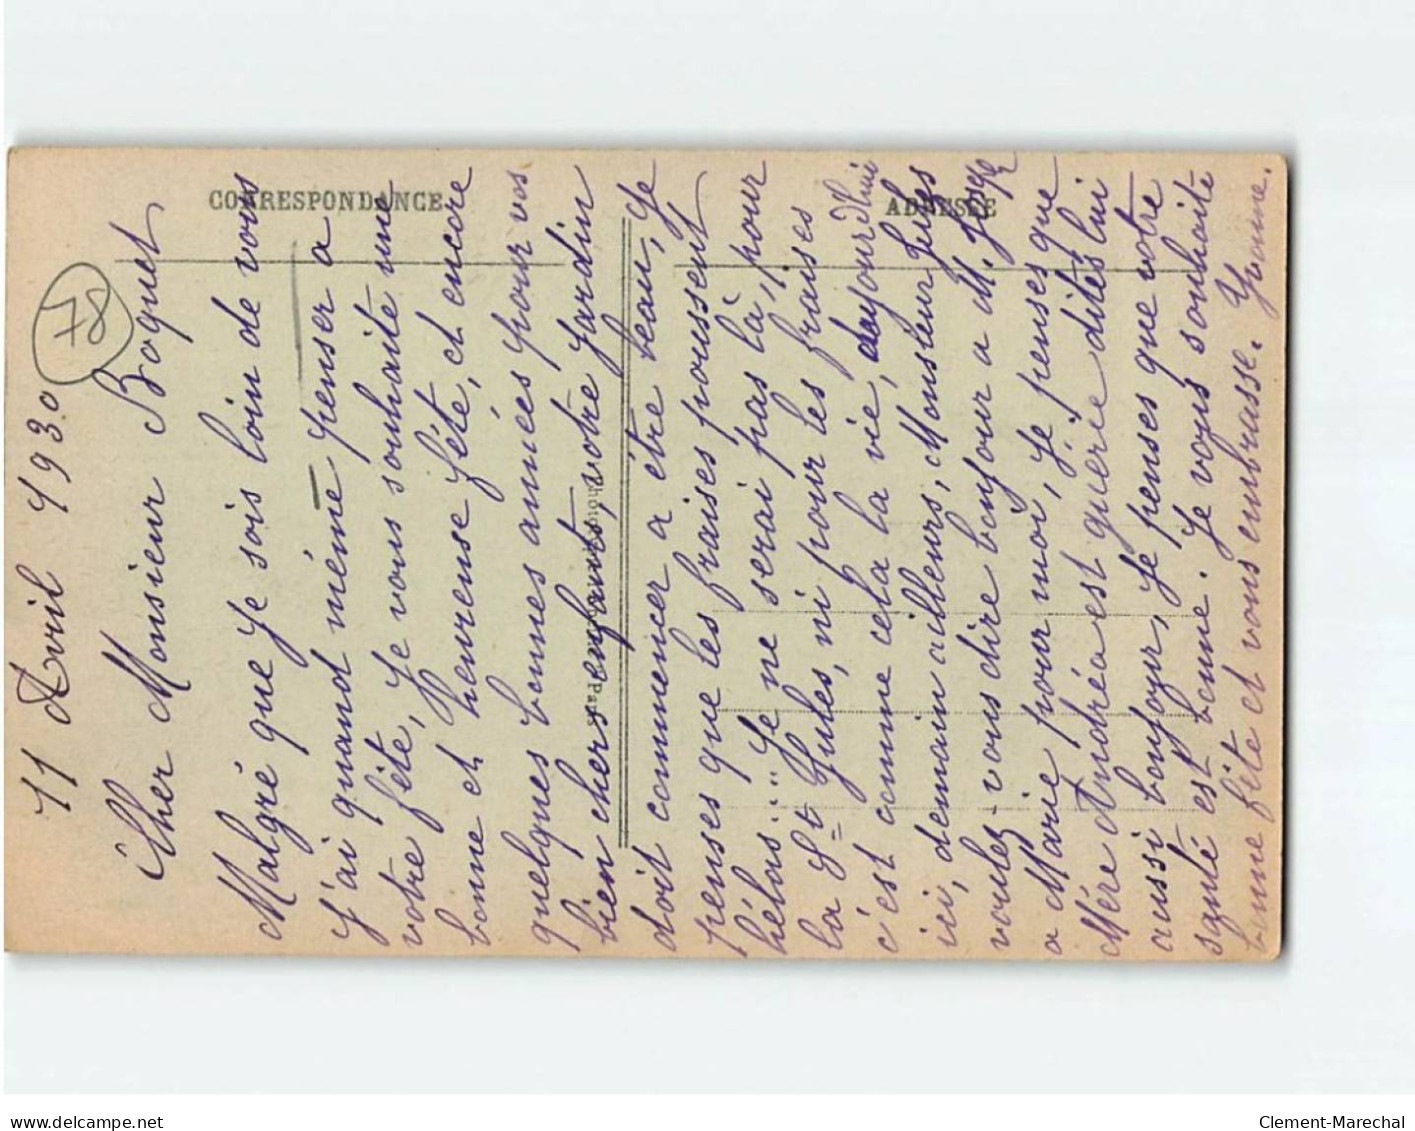 11 Avril 1930
Cher Monsieur Boquet
Malgré que je sois loin de vous
j'ai quand même penser a
votre fête, je vous souhaite une
bonne et heureuse fête, et encore
quelques bonnes années pour vos
bien chers enfants, votre jardin
doit commencer a être beau, je
penses que les fraises poussent
hélas... je ne serai pas là, pour
la St Jules, ni pour les fraises
c'est comme cela la vie, aujourd'hui
ici, demain ailleurs, Monsieur Jules
voulez-vous dire bonjour a M.
a Marie pour moi, je penses que
Mére Andréa est guerie dites lui
aussi bonjour, je penses que votre
santé est bonne. Je vous souhaite
bonne fête et vous embrasse. Yvonne.
CORRESPONDANCE
ADRESSE
78
www.delcampe.net
Clement-Marechal